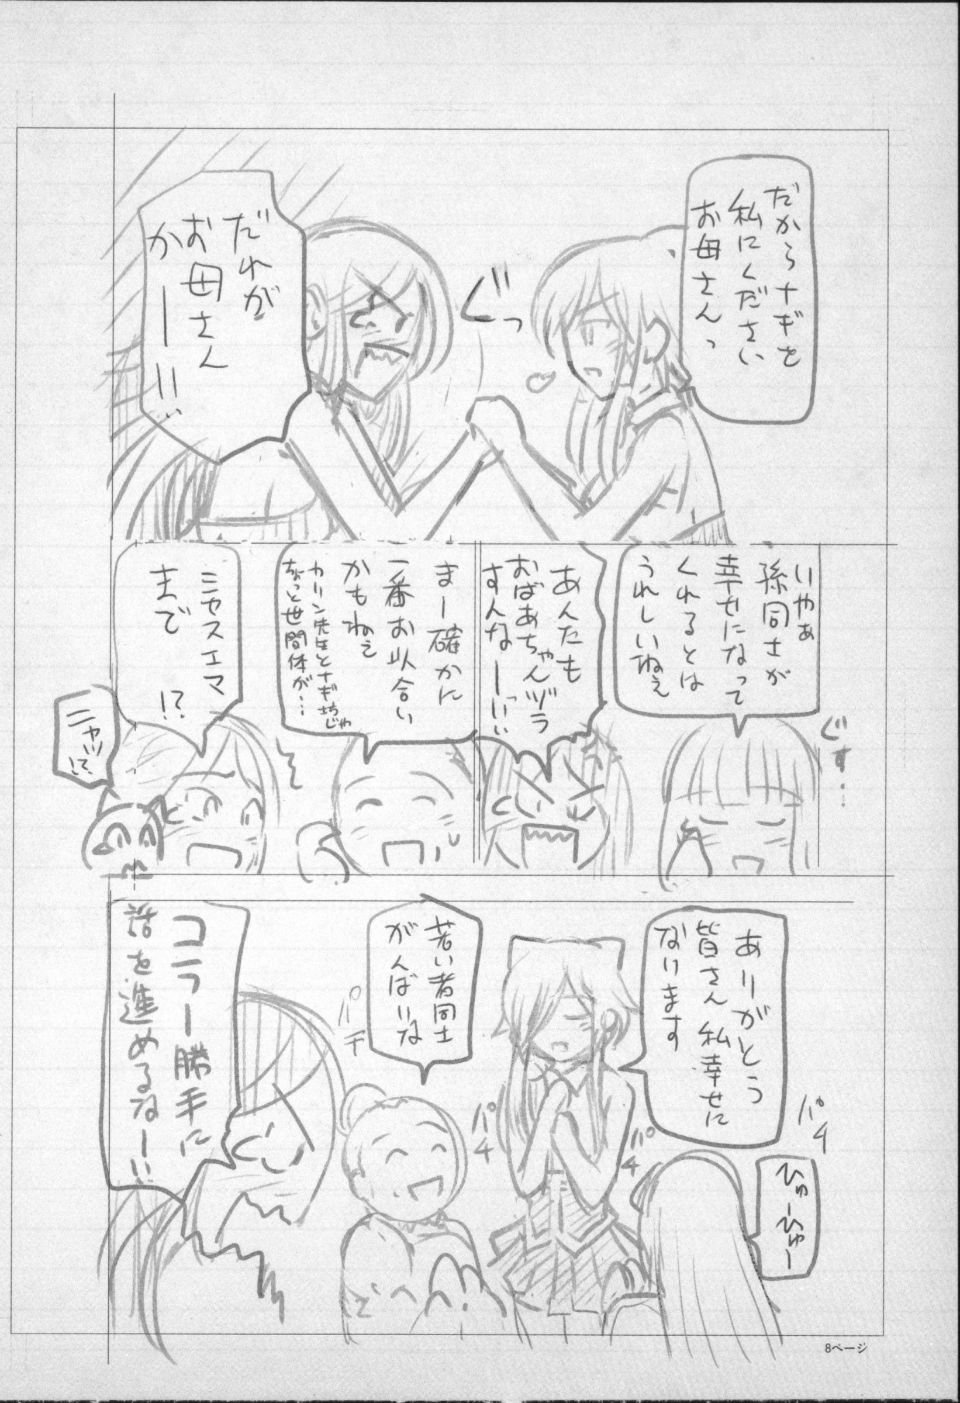 だからナギを
私にください
お母さんっ
ぐっ
だれが
お母さん
かーー!!
いやぁ
孫同士が
幸せになって
くれるとは
うれしいねぇ
ぐす…
あんたも
おばあちゃんヅラ
すんなーーっ!!
まー確かに
一番お似合い
かもねぇ
カリン先生とナギ坊じゃ
ちょっと世間体が…
ミヤスエマ
まで
!?
ニャッ!?
ありがとう
皆さん 私幸せに
なります
パチ
ひゅーひゅー
パチ
パチ
若い者同士
がんばいな
パチ
コラー勝手に
話を進めるなー!!
8ページ